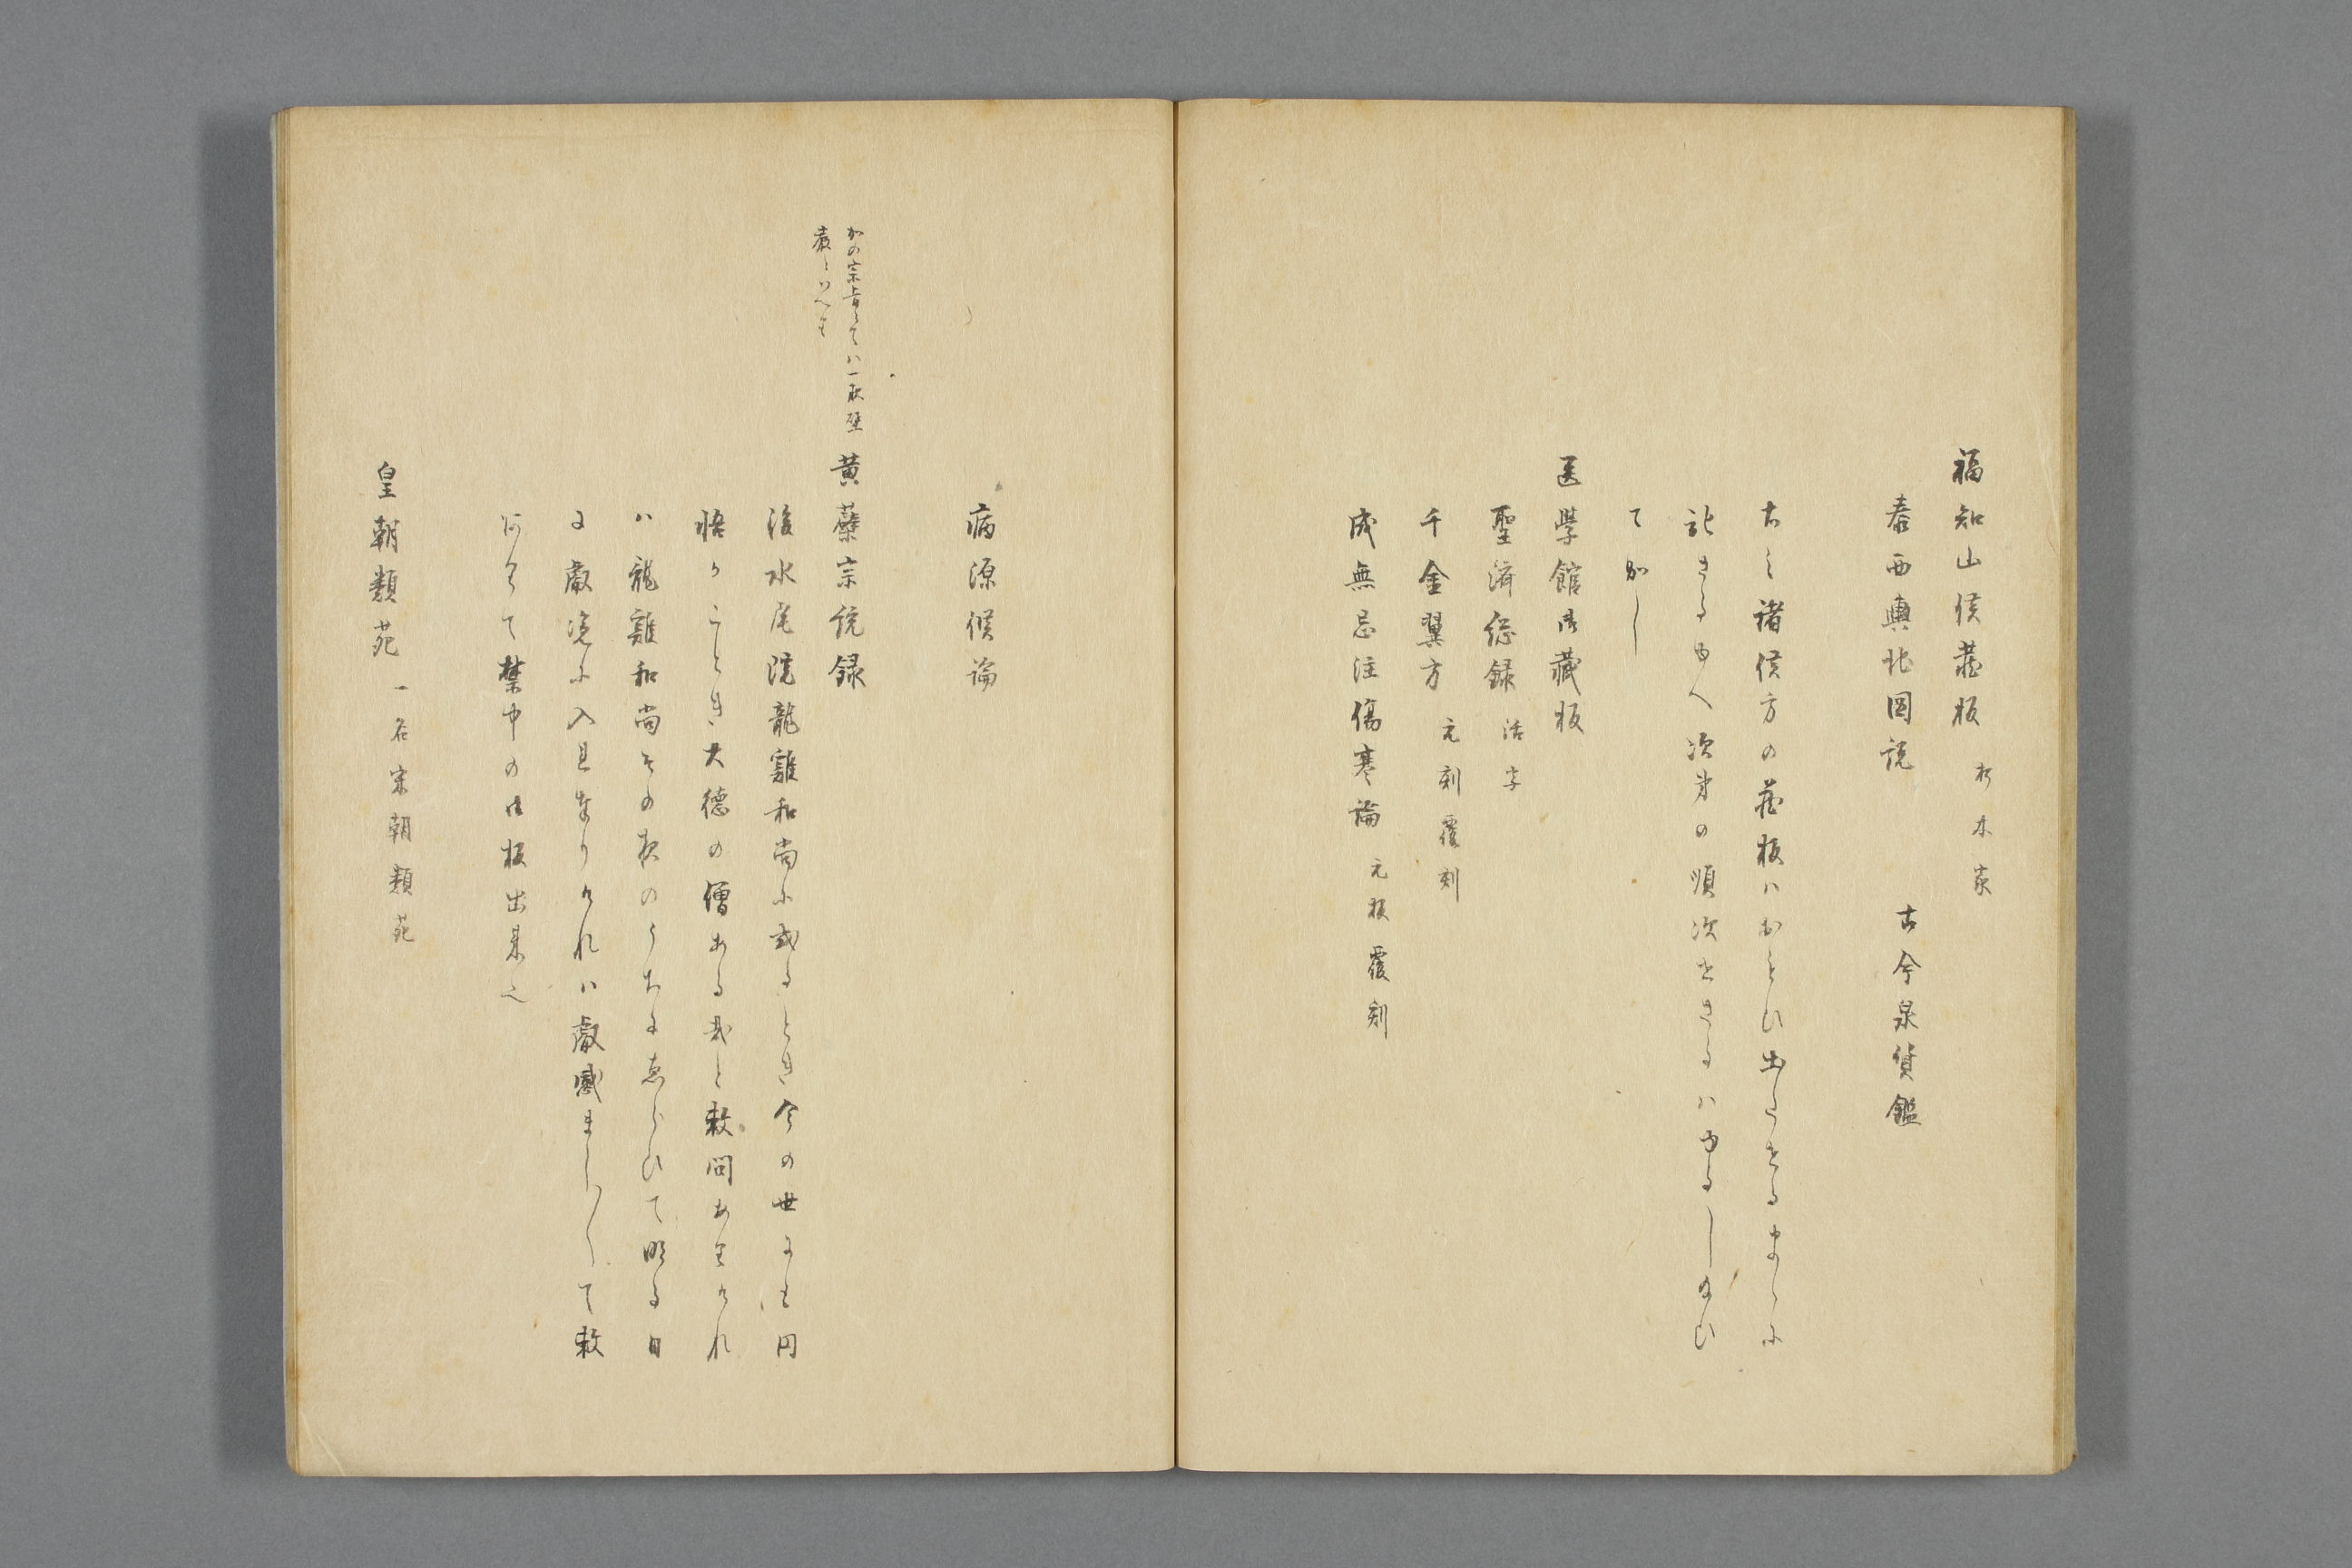 福知山侯蔵板 朽木家
泰西輿地図説 古今泉貨鑑
右之諸侯方の蔵板ハおもひ出したるまゝに
記きるゆへ次第の順次せさるハゆるし給ひ
てかし
医学館御蔵板
聖済総録 活字
千金翼方 元刻覆刻
成無己注傷寒論 元板覆刻
病源候論
かの宗旨にてハ一夜壁
書といへり
黄蘗宗統録
後水尾院龍谿和尚に或るとき今の世にも円
悟かことき大徳の僧ある哉と敕問ありけれ
ハ龍谿和尚その夜のうちにあらひて明る日
に叡覧に入且奉りけれハ叡感まし〳〵て敕
ありて禁中の御板出来之
皇朝類苑 一名宋朝類苑